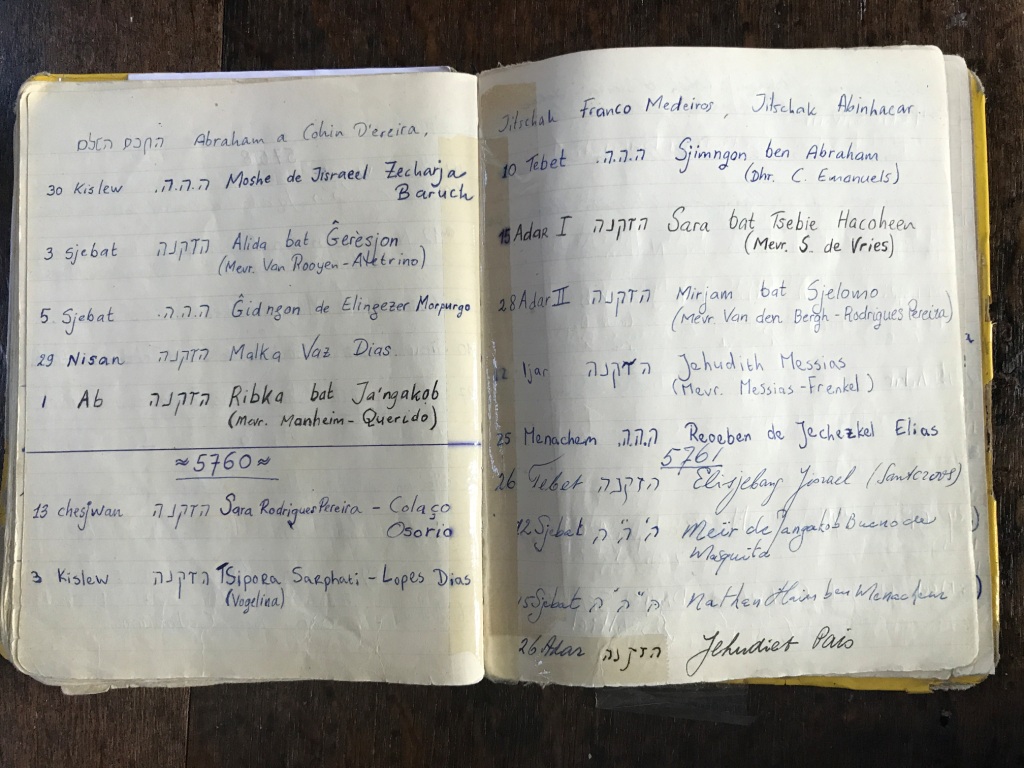 החכם השלם Abraham a Cohin D'ereira,
30 Kislew ה.ה.ה. Moshe de Jisraeel Zecharja
Baruch
3 Sjebat הזקנה Alida bat Ĝerèsjon
(Mevr. Van Rooyen-Avetrino)
5 Sjebat ה.ה.ה. Ĝidngon de Elingezer Morpurgo
29 Nisan הזקנה Malka Vaz Dias.
1 Ab הזקנה Ribka bat Ja'ngakob
(Mevr. Manheim-Querido)
≈5760≈
13 chesjwan הזקנה Sara Rodrigues Pereira - Colaço
Osorio
3 Kislew הזקנה Tsipora Sarphati - Lopes Dias
(Vogelina)
Jitschak Franco Medeiros, Jitschak Abinhacar.
10 Tebet ה.ה.ה. Sjimngon ben Abraham
(Dhr. C. Emanuels)
15 Adar I הזקנה Sara bat Tsebie Hacoheen
(Mevr. S. de Vries)
28 Adar II הזקנה Mirjam bat Sjelomo
(Mevr. Van den Bergh-Rodrigues Pereira)
Ijar הזקנה Jehudith Messias
(Mevr. Messias-Frenkel)
25 Menachem ה.ה.ה. Reoeben de Jechezkel Elias
5761
26 Tebet הזקנה Elisjebang Jisrael
12 Sjebat ה' ה' ה' Meïr de Jangakob Bueno de
Masquita
15 Sjebat ה' ה' ה' Nathan ben Menacheem
26 Adar הזקנה Jehudiet Pais